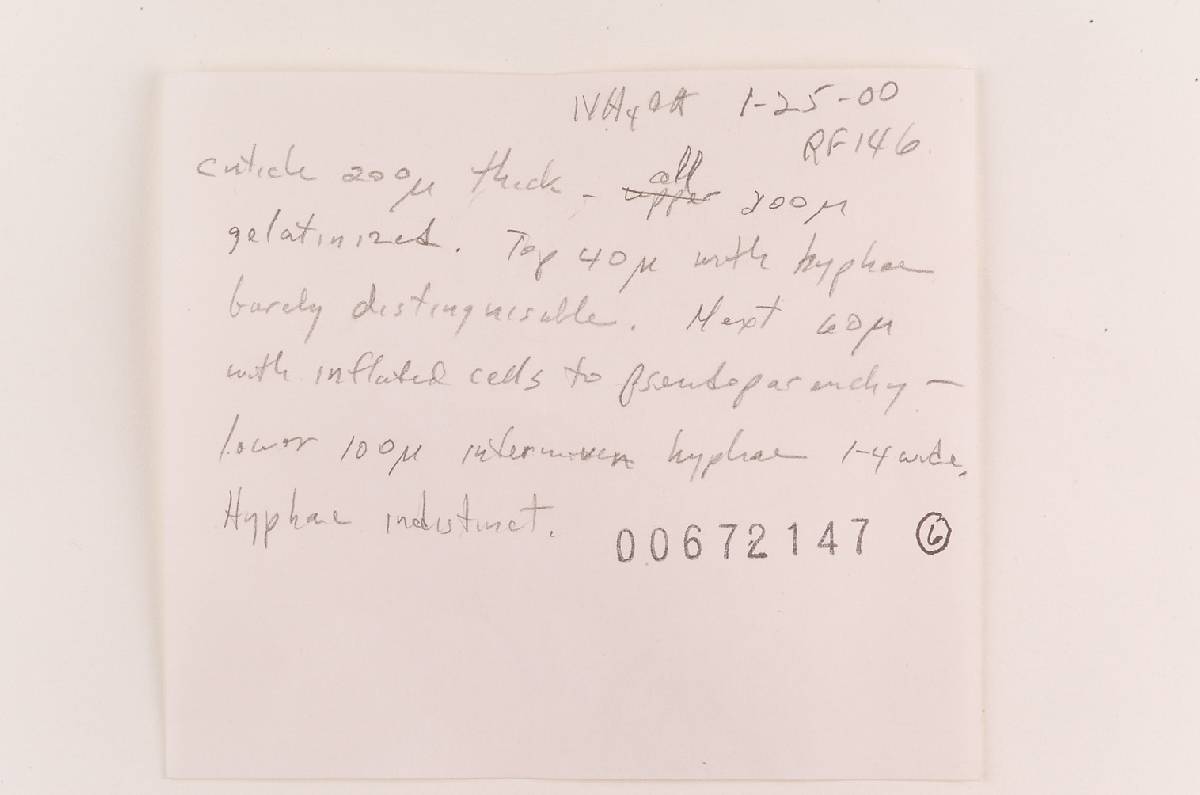 NH4OH 1-25-00
RF146
Cuticle 200µ thick, - all upper 200µ
gelatinized. Top 40µ with hyphae
barely distinguisable. Next 60µ
with inflated cells to pseudoparenchy -
lower 100µ interwoven hyphae 1-4 wide.
Hyphae indistinct.
00672147 6